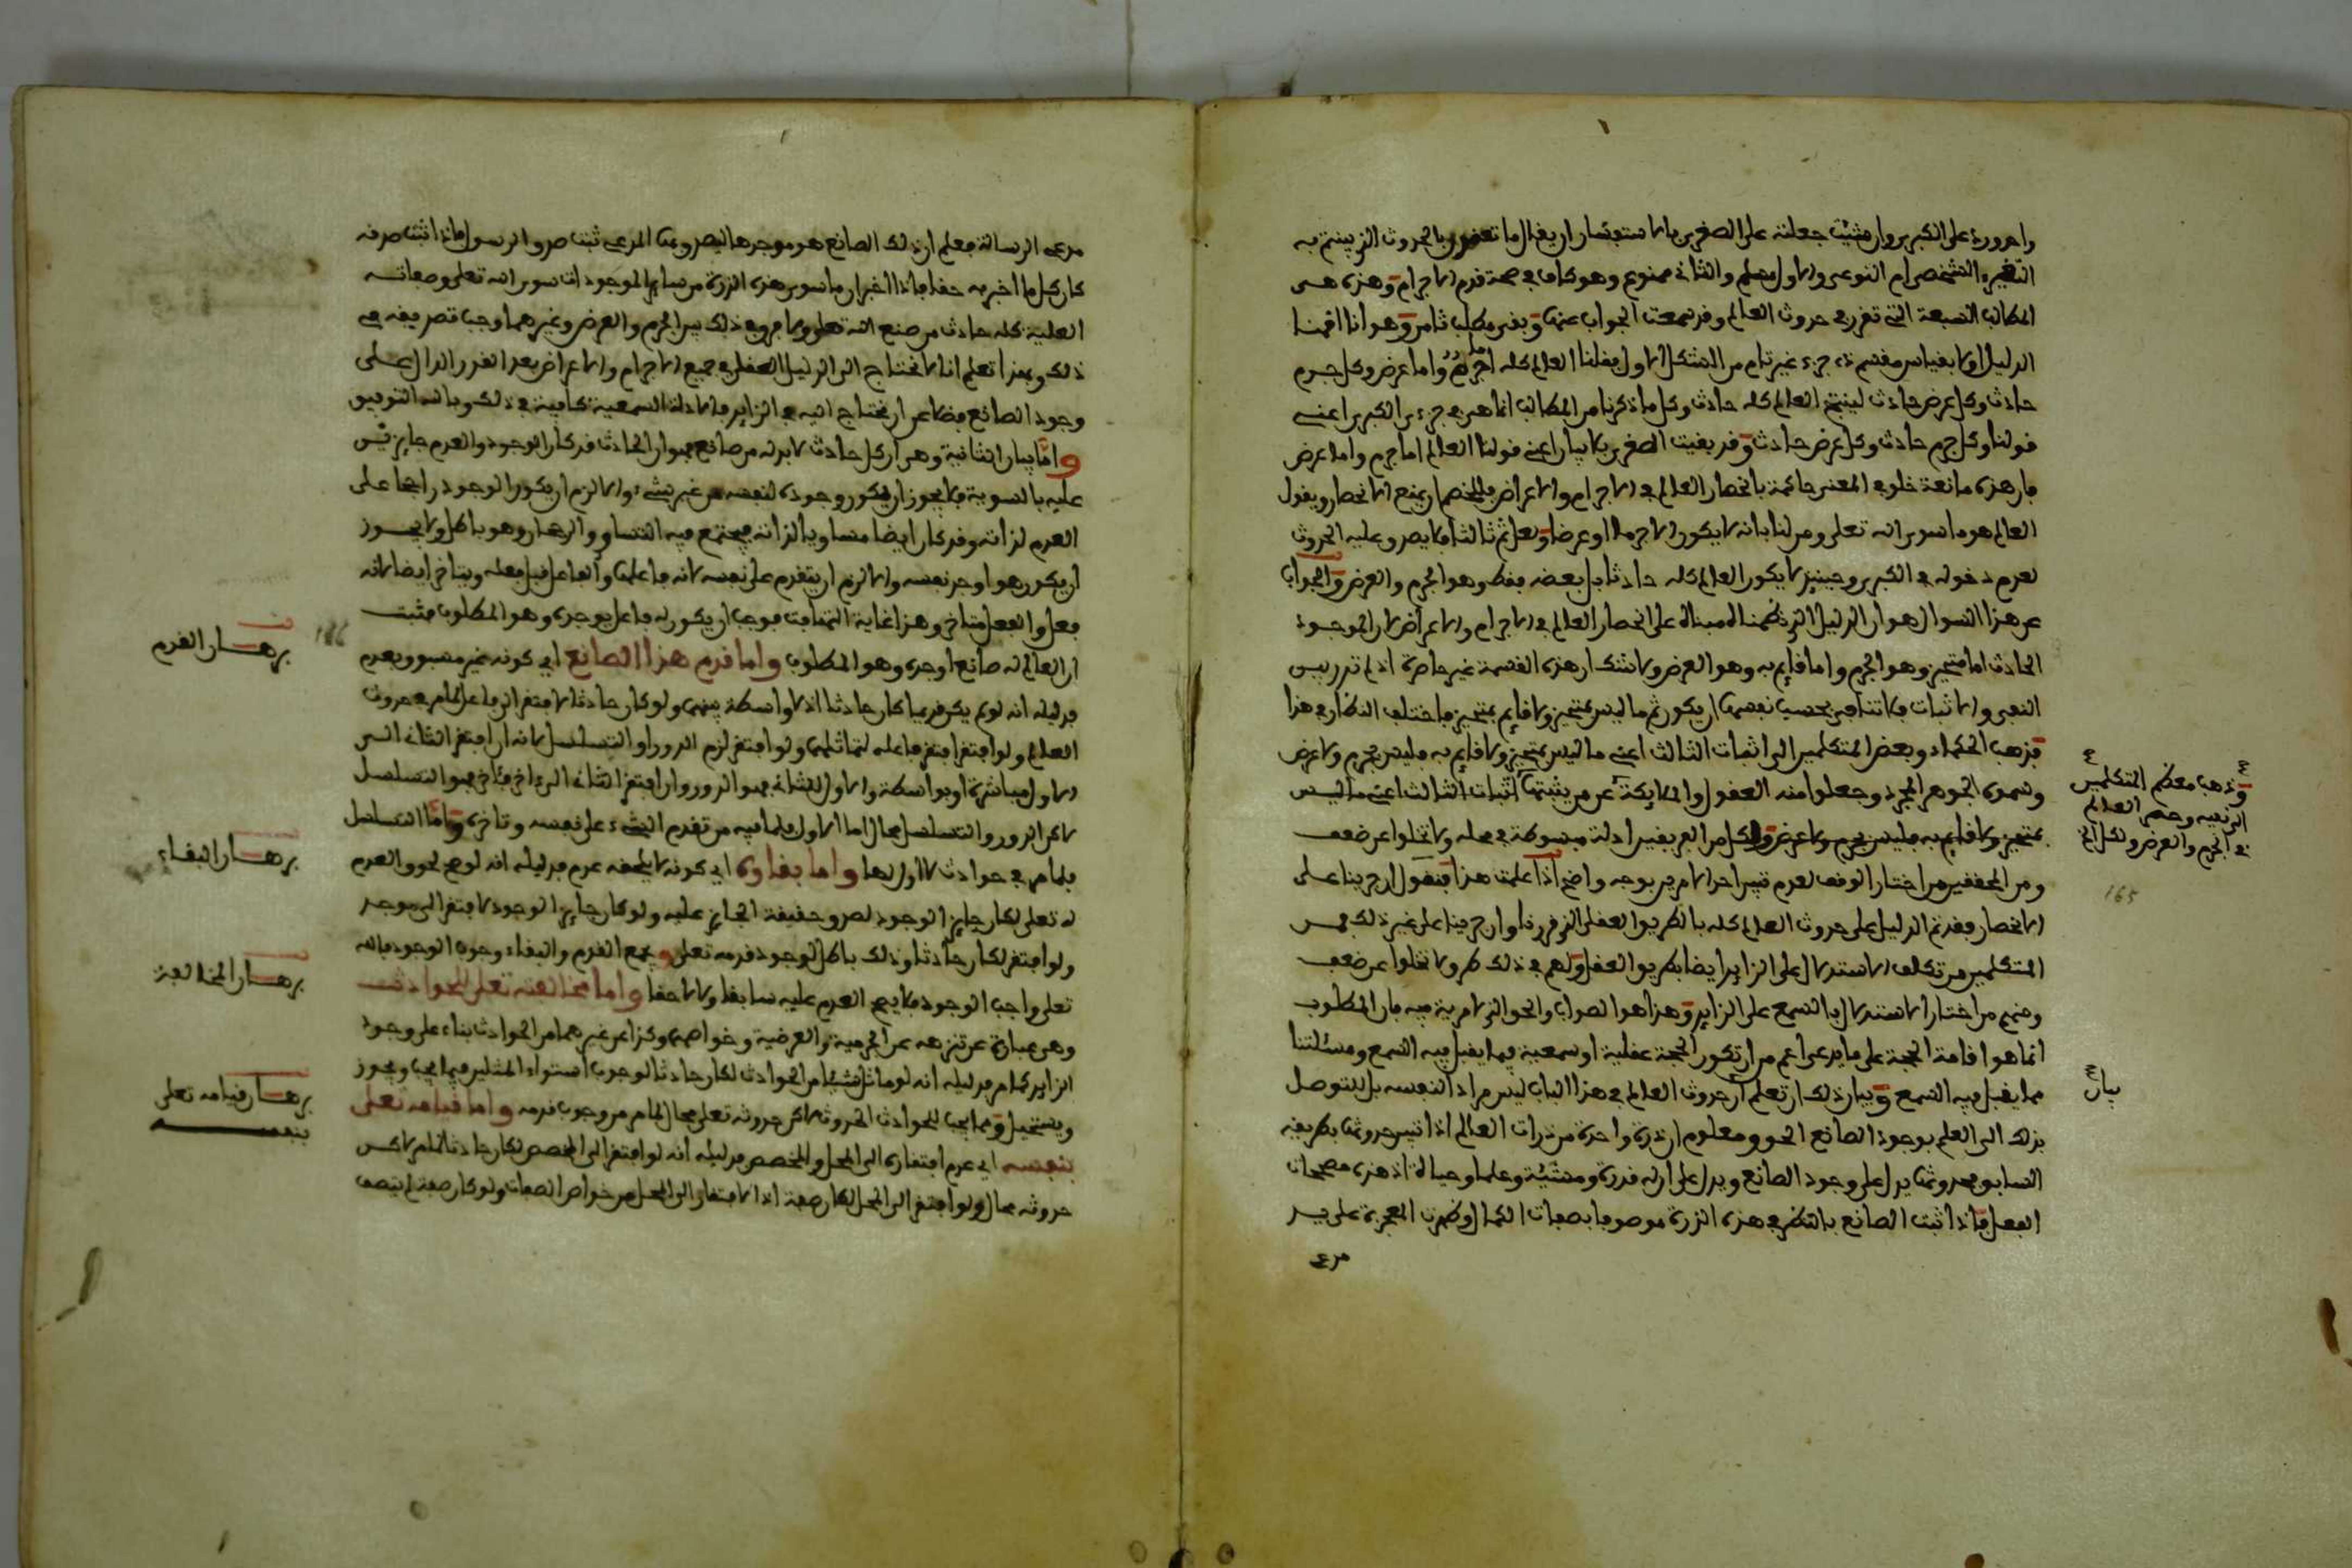 واوردته على الكبرى وان شئت جعلته على الصغرى بالاستفسار ان يقال ما تعنون بالحدوث الذي ينتج به
التغير الشخصي ام النوعي والاول مسلم والثاني ممنوع وهو كاف في صحة قدم الاجرام وهذه هي
المطالب السبعة التي تقرر في حدوث العالم وقد سمعت الجواب عنها وبقي مطلب ثامن وهو انا اقمنا
الدليل اولا بقياس مقسم ذي جزء غير تام من الشكل الاول فقلنا العالم كله اما جرم واما عرض وكل جرم
حادث وكل عرض حادث لينتج العالم كله حادث وكل ما ذكرنا من المطالب انما هي في جزءي الكبرى اعني
قولنا وكل جرم حادث وكل عرض حادث وقد بقيت الصغرى بلا بيان اعني قولنا العالم اما جرم واما عرض
فان هذه مانعة خلو في المعنى حاكمة بانحصار العالم في الاجرام والاعراض فللخصم ان يمنع الانحصار ويقول
العالم هو ما سوى الله تعالى ومن لنا بانه لا يكون الا جرما او عرضا ولعل ثم ثالثا فلا يصدق عليه الحدوث
لعدم دخوله في الكبرى وحينئذ لا يكون العالم كله حادثا بل بعضه فقط وهو الجرم والعرض والجواب
عن هذا السؤال هو ان الدليل الذي نظمناه مبناه على انحصار العالم في الاجرام والاعراض لان الموجود
الحادث اما متحيز وهو الجرم واما قايم به وهو العرض ولا شك ان هذه القسمة غير حاصرة اذ لم تدر بين
النفي والاثبات فلا تنافي بحسب نفسها ان يكون ثم ما ليس بمتحيز ولا قايم بمتحيز فاختلف النظار في هذا
فذهب الحكماء وبعض المتكلمين الى اثبات الثالث اعني ما ليس بمتحيز ولا قايم به فليس بجرم ولا عرض
وسموه الجوهر المجرد وجعلوا منه العقول والملائكة عن من يثبتها اثبات الثالث اعني ما ليس
بمتحيز ولا قايم به فليس بجرم ولا عرض ولكل من الفريقين ادلة مبسوطة في محله ولا تخلوا عن ضعف
ومن المحققين من اختار الوقف لعدم تبين احد الامرين بوجه واضح اذا علمت هذا فنقول ان جرينا على
الانحصار فقد تم الدليل على حدوث العالم كله بالطريق العقلي الذي قررنا وان جرينا على غير ذلك فمن
المتكلمين من تكلف الاستدلال على الزايد ايضا بطريق العقل ولهم في ذلك طرق لا تخلوا عن ضعف
ومنهم من اختار الاستدلال بالسمع على الزايد وهذا هو الصواب والحق الذي لا مرية فيه فان المطلوب
انما هو اقامة الحجة على ما يدعى اعم من ان تكون الحجة عقلية او سمعية فيما يقبل فيه السمع ومسئلتنا
مما يقبل فيه السمع وبيان ذلك ان تعلم ان حدوث العالم في هذا الباب ليس مرادا لنفسه بل للتوصل
بذلك الى العلم بوجود الصانع الحق ومعلوم ان ذرة واحدة من ذرات العالم اذا تبين حدوثها بطريقه
السابق فحدوثها يدل على وجود الصانع ويدل على ان له قدرة ومشيئة وعلما وحياة اذ هذه مصححات
الفعل فاذا ثبت الصانع بالنظر في هذه الذرة موصوفا بصفات الكمال وظهرت المعجزة على يد
مدعي
وذهب معظم المتكلمين
الى نفيه وحصر العالم
في الجرم والعرض ولكل الخ
165
بيان
مدعي الرسالة فعلم ان ذلك الصانع هو موجدها ليصدق بها المدعي ثبت صدق الرسول فاذا ثبت صدقه
كان كل ما اخبر به حقا فاذا اخبر ان ما سوى هذه الذرة من ساير الموجودات سوى الله تعالى وصفاته
العلية كله حادث من صنع الله تعالى ولا فرق في ذلك بين الجرم والعرض وغيرهما وجب تصديقه في
ذلك وبهذا تعلم انا لا نحتاج الى الدليل العقلي في جميع الاجرام والاعراض بعد القدر الدال على
وجود الصانع فضلا عن ان نحتاج اليه في الزايد فالادلة السمعية كافية في ذلك وبالله التوفيق
واما بيان الثانية وهي ان كل حادث لا بد له من صانع فهو ان الحادث قد كان الوجود والعدم جايزين
عليه بالسوية فلا يجوز ان يكون وجوده لنفسه من غير شيء والا لزم ان يكون الوجود راجحا على
العدم لذاته وقد كان ايضا مساويا لذاته فيجتمع فيه التساوي والرجحان وهو باطل ولا يجوز
ان يكون هو اوجد نفسه والا لزم ان يتقدم على نفسه لانه فاعلها والفاعل قبل فعله ويتاخر ايضا لانه
فعل والفعل متاخر وهذا غاية التهافت فوجب ان يكون له فاعل يوجده وهو المطلوب فثبت
ان العالم له صانع اوجده وهو المطلوب واما قدم هذا الصانع اي كونه غير مسبوق بعدم
فدليله انه لو لم يكن قديما كان حادثا اذ لا واسطة بينهما ولو كان حادثا لافتقر الى فاعل لما مر في حدوث
العالم ولو افتقر افتقر فاعله لتماثلهما ولو افتقر لزم الدور او التسلسل لانه ان افتقر الثاني الى
الاول مباشرة او بواسطة والاول للثاني فهو الدور وان افتقر الثاني الى اخر فاخر فهو التسلسل
لاكن الدور والتسلسل محال اما الاول فلما فيه من تقدم الشيء على نفسه وتاخره واما التسلسل
فلما مر في حوادث لا اول لها واما بقاؤه اي كونه لا يلحقه عدم فدليله انه لو صح لحوق العدم
له تعالى لكان جايز الوجود لصدق حقيقة الجايز عليه ولو كان جايز الوجود لافتقر الى موجد
ولو افتقر لكان حادثا وذلك باطل لوجوب قدمه تعالى ويجمع القدم والبقاء وجوب الوجود فالله
تعالى واجب الوجود فلا يصح العدم عليه سابقا ولا لاحقا واما مخالفته تعالى للحوادث
وهي عبارة عن تنزهه عن الجرمية والعرضية وخواصهما وكذا عن غيرهما من الحوادث بناء على وجود
الزايد كما مر فدليله انه لو ماثل شيئا من الحوادث لكان حادثا لوجوب استواء المثلين فيما يجب ويجوز
ويستحيل ومما يجب للحوادث الحدوث لاكن حدوثه تعالى محال لما مر من وجوب قدمه واما قيامه تعالى
بنفسه اي عدم افتقاره الى المحل والمخصص فدليله انه لو افتقر الى المخصص لكان حادثا لما مر لاكن
حدوثه محال ولو افتقر الى المحل لكان صفة اذ الافتقار الى المحل من خواص الصفات ولو كان صفة لم يتصف
برهان القدم
166
برهان البقاء
برهان المخالفة
برهان قيامه تعالى
بنفسه